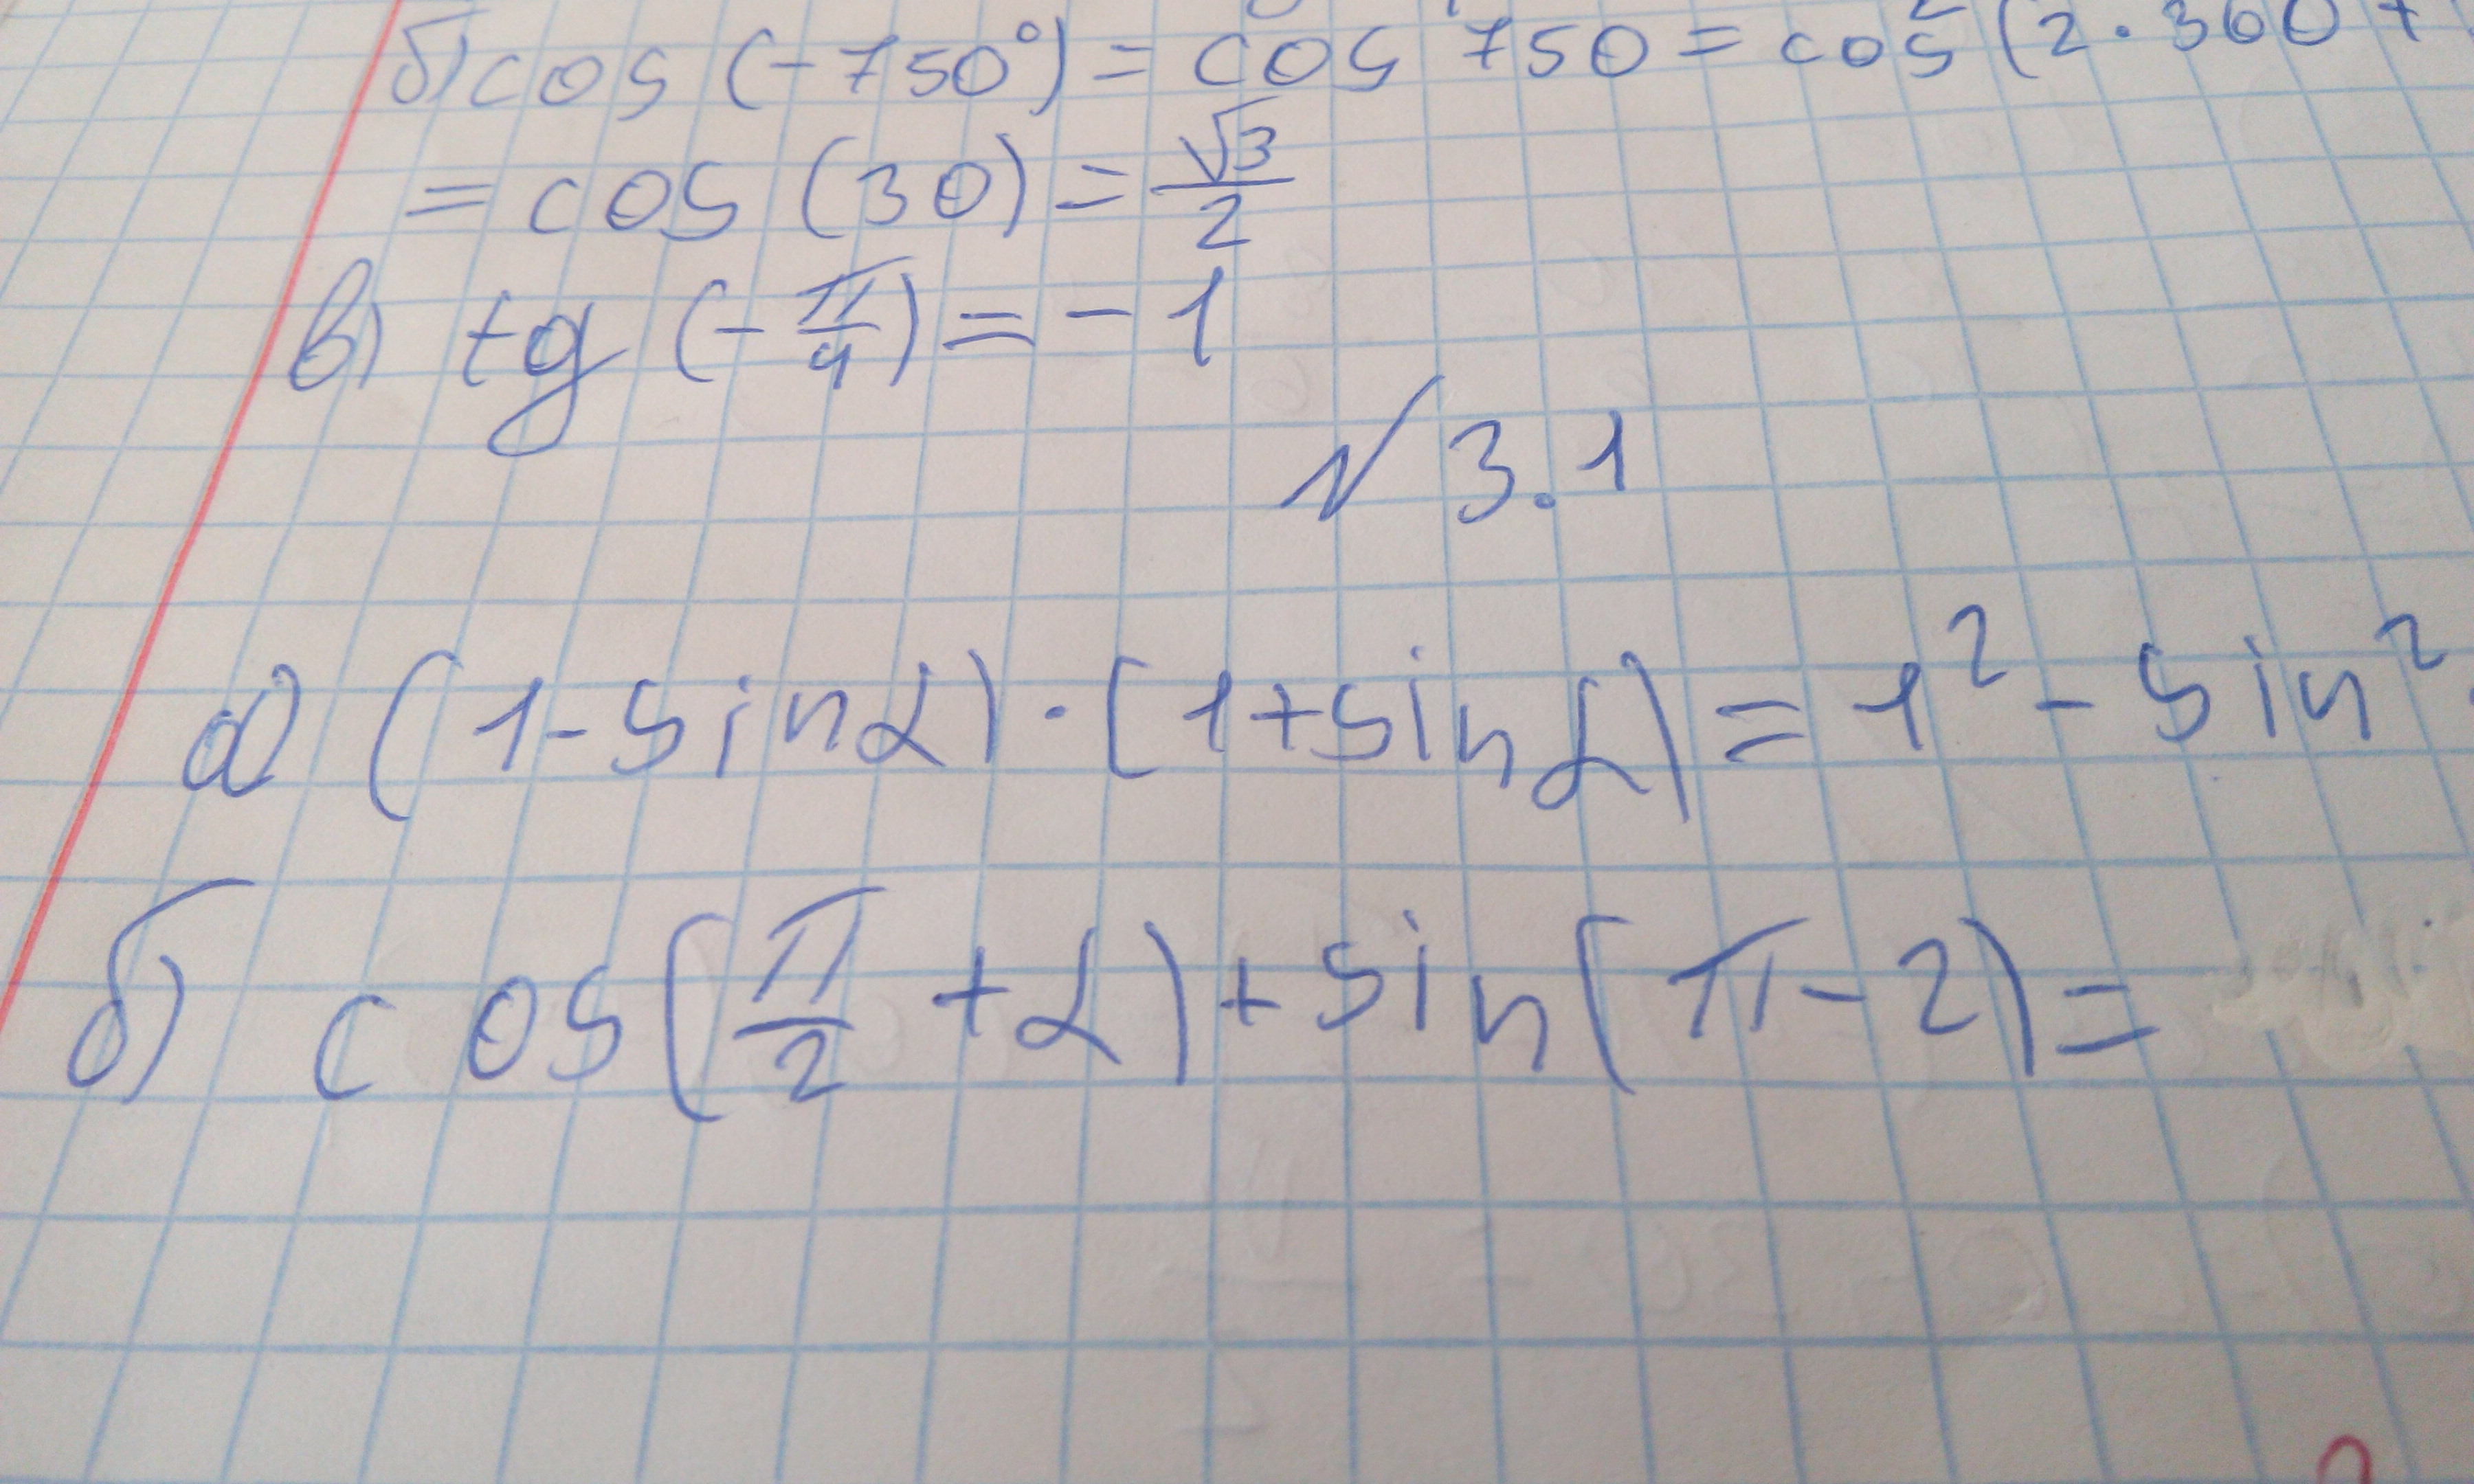 б) cos (-750°) = cos 750 = cos (2·360 +
= cos (30) = √3/2
в) tg (-π/4) = -1
№ 3.1
а) (1-sinα)·(1+sinα) = 1² - sin²
б) cos(π/2 + α) + sin(π - 2) =